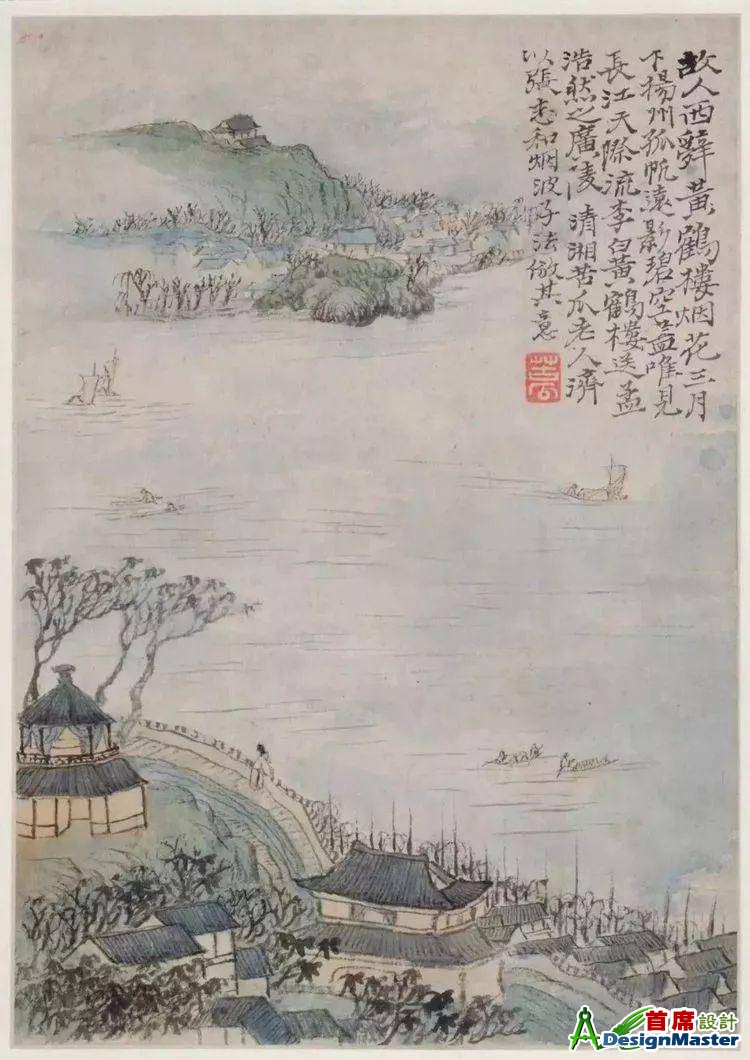 故人西辭黃鶴樓烟花三月
下揚州孤帆遠影碧空盡唯見
長江天際流李白黃鶴樓送孟
浩然之廣陵 清湘苦瓜老人濟
以張志和烟波子法倣其意
苦瓜
首席設計
ADesignMaster